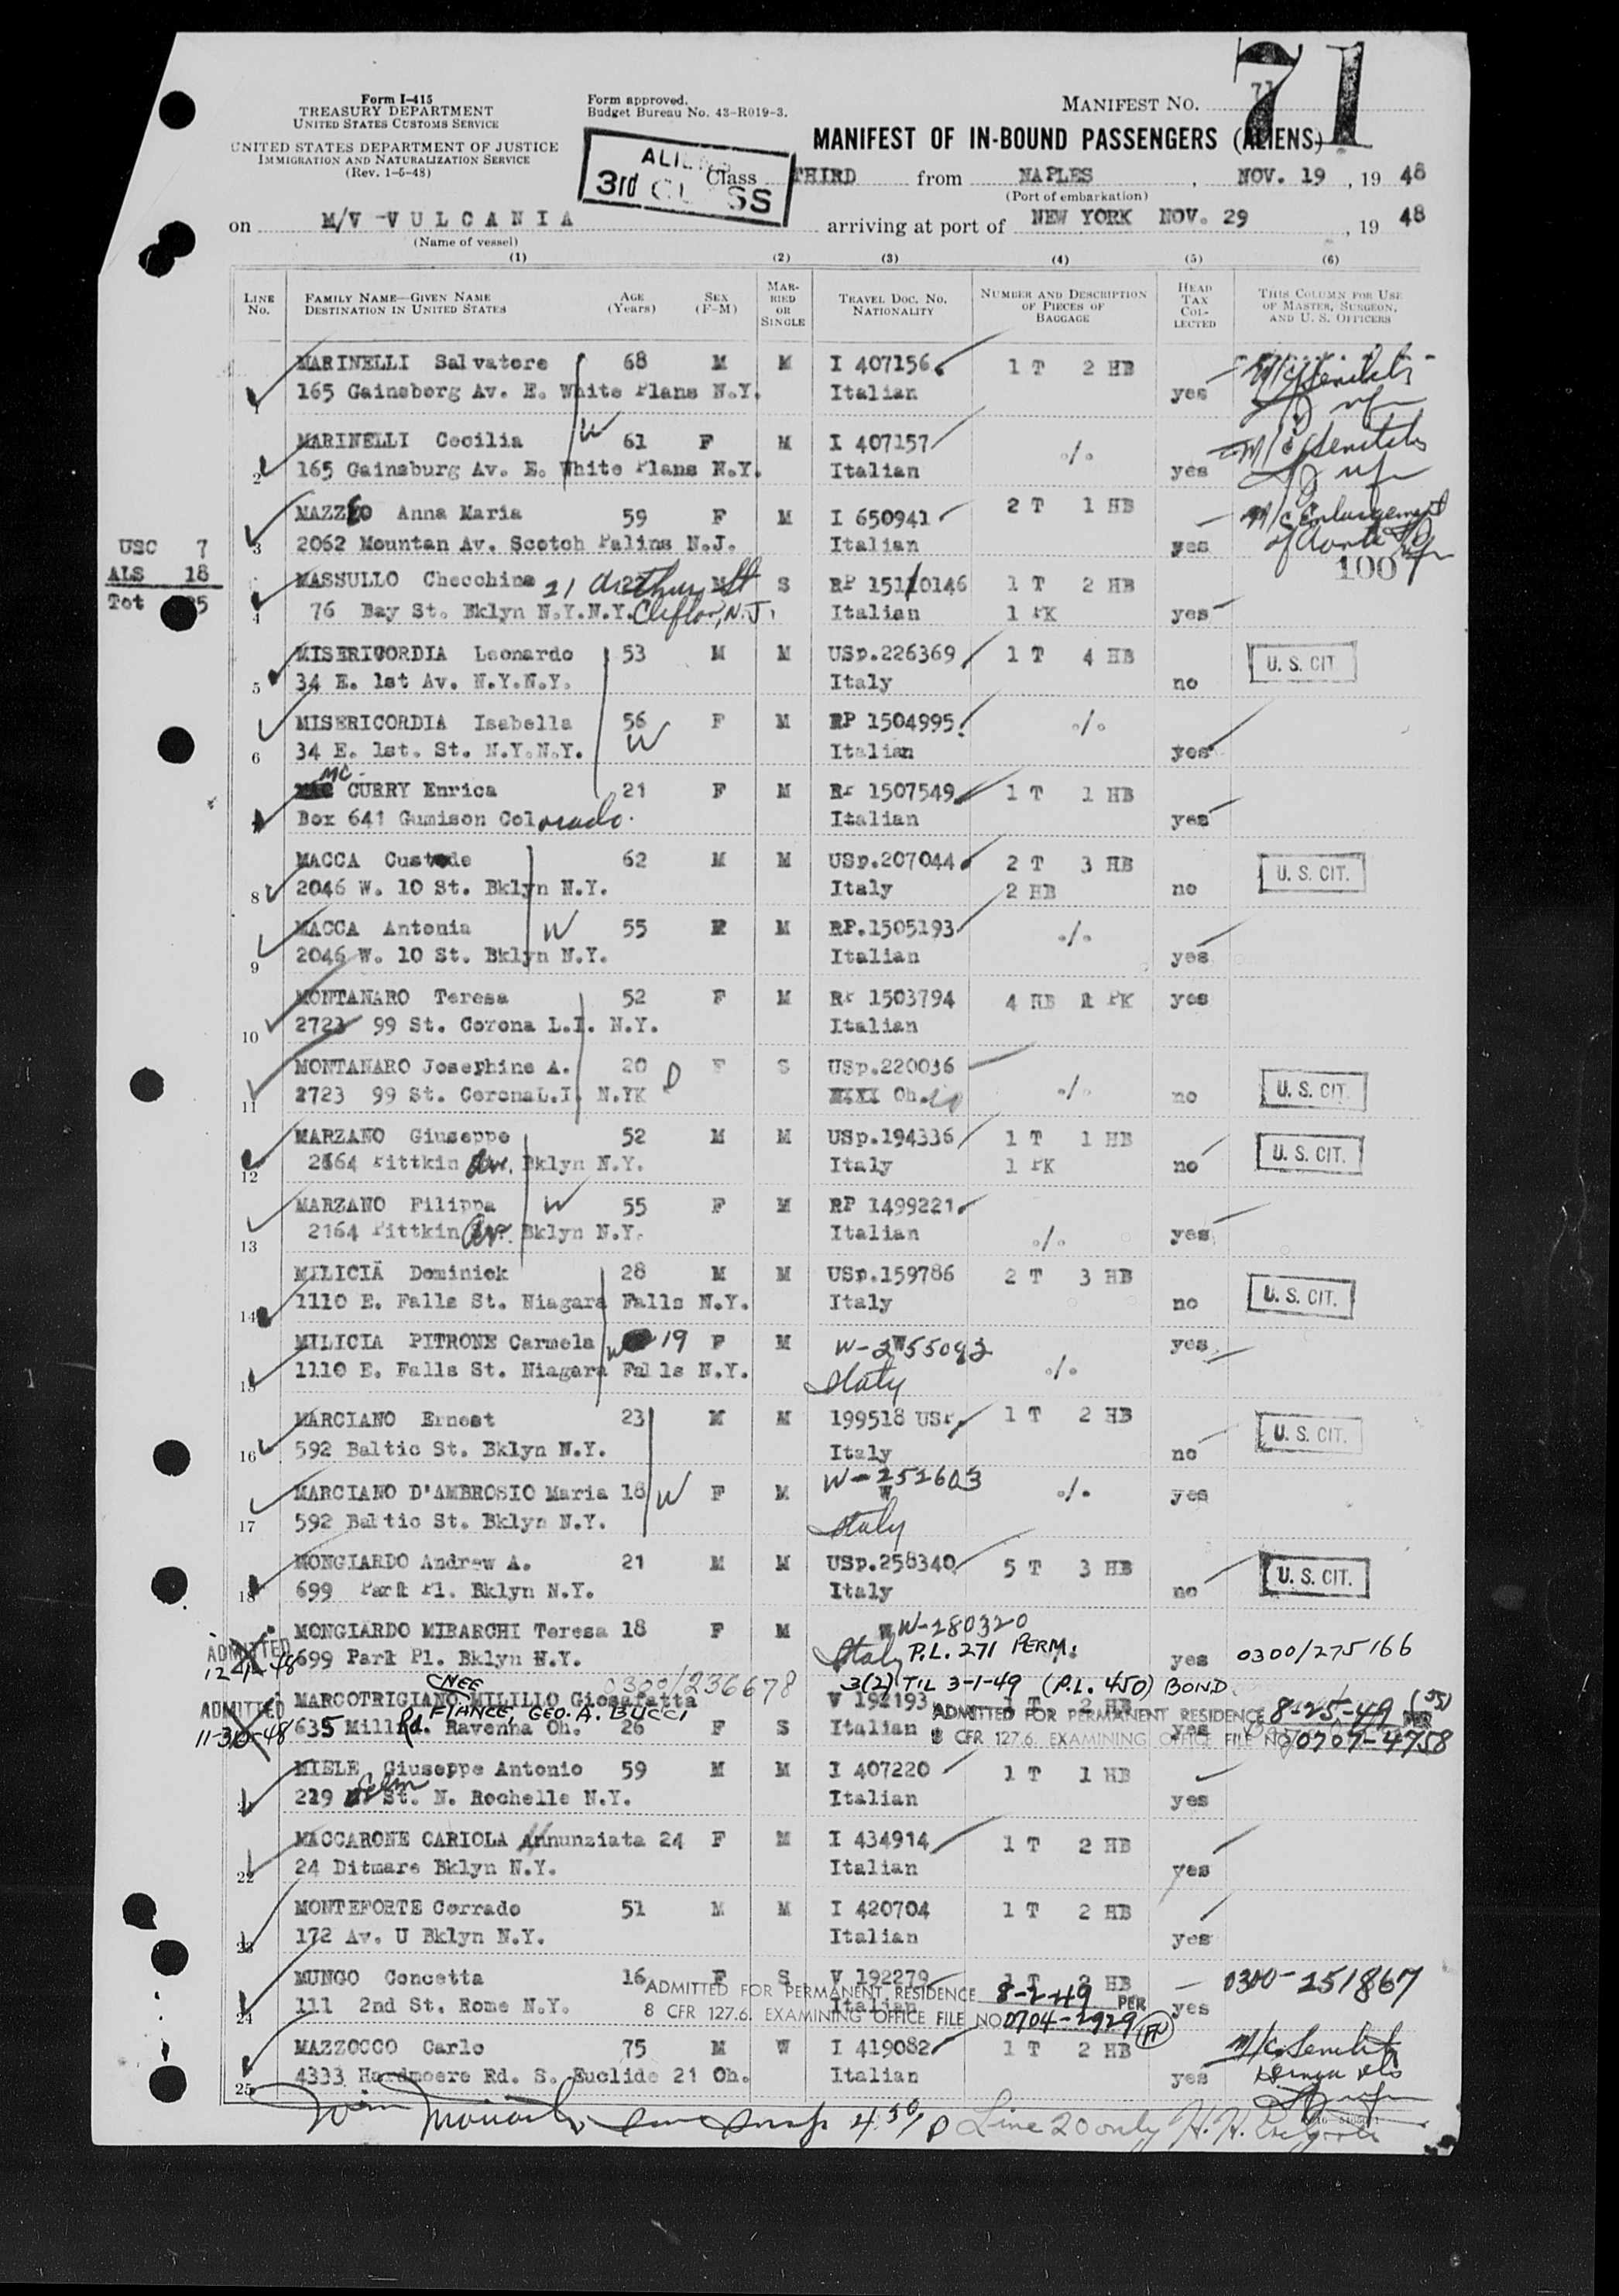 71
Form I-415
TREASURY DEPARTMENT
UNITED STATES CUSTOMS SERVICE
UNITED STATES DEPARTMENT OF JUSTICE
IMMIGRATION AND NATURALIZATION SERVICE
(Rev. 1-5-48)
Form approved.
Budget Bureau No. 43-R019-3.
MANIFEST NO. 71
MANIFEST OF IN-BOUND PASSENGERS (ALIENS)
3rd Class THIRD from NAPLES, NOV. 19, 19 48
(Port of embarkation)
on M/V VULCANIA arriving at port of NEW YORK NOV. 29, 19 48
(Name of vessel)
(1) (2) (3) (4) (5) (6)
LINE NO. FAMILY NAME—GIVEN NAME DESTINATION IN UNITED STATES AGE (Years) SEX (F-M) MARRIED OR SINGLE TRAVEL DOC. NO. NATIONALITY NUMBER AND DESCRIPTION OF PIECES OF BAGGAGE HEAD TAX COLLECTED THIS COLUMN FOR USE OF MASTER, SURGEON, AND U. S. OFFICERS
MARINELLI Salvatore 68 M M I 407156 1 T 2 HB
1 165 Gainsborg Av. E. White Plans N.Y. Italian yes
MARINELLI Cecilia W 61 F M I 407157 o/o
2 165 Gainsburg Av. E. White Plans N.Y. Italian yes
MAZZEO Anna Maria 59 F M I 650941 2 T 1 HB M/C Enlargement
3 2062 Mountan Av. Scotch Palins N.J. Italian yes of Aorta
USC 7
ALS 18
Tot 25
100
MASSULLO Checchina 21 Arthur St S RP 1510146 1 T 2 HB
4 76 Bay St. Bklyn N.Y.N.Y. Clifton, N.J. Italian 1 PK yes
MISERICORDIA Leonardo 53 M M USp.226369 1 T 4 HB U. S. CIT
5 34 E. 1st Av. N.Y.N.Y. Italy no
MISERICORDIA Isabella 56 F M RP 1504995 o/o
6 34 E. 1st. St. N.Y.N.Y. W Italian yes
MC CURRY Enrica 21 F M RP 1507549 1 T 1 HB
7 Box 641 Gumison Colorado. Italian yes
MACCA Custode 62 M M USp.207044 2 T 3 HB U. S. CIT.
8 2046 W. 10 St. Bklyn N.Y. Italy 2 HB no
MACCA Antonia W 55 F M RP.1505193 o/o
9 2046 W. 10 St. Bklyn N.Y. Italian yes
MONTANARO Teresa 52 F M RP 1503794 4 HB 1 PK yes
10 2723 99 St. Corona L.I. N.Y. Italian
MONTANARO Josephine A. 20 D F S USp.220036 o/o U. S. CIT.
11 2723 99 St. Corona L.I. N.Y. Oh. no
MARZANO Giuseppe 52 M M USp.194336 1 T 1 HB U. S. CIT.
12 2164 Pittkin Av. Bklyn N.Y. Italy 1 PK no
MARZANO Filippa W 55 F M RP 1499221
13 2164 Pittkin Av. Bklyn N.Y. Italian o/o yes
MILICIA Dominick 28 M M USp.159786 2 T 3 HB U. S. CIT.
14 1110 E. Falls St. Niagara Falls N.Y. Italy no
MILICIA PITRONE Carmela W 19 F M W-255092 yes
15 1110 E. Falls St. Niagara Falls N.Y. Italy o/o
MARCIANO Ernest 23 M M 199518 USP. 1 T 2 HB U. S. CIT.
16 592 Baltic St. Bklyn N.Y. Italy no
MARCIANO D'AMBROSIO Maria 18 W F M W-252603 o/o yes
17 592 Baltic St. Bklyn N.Y. Italy
MONGIARDO Andrew A. 21 M M USp.258340 5 T 3 HB U. S. CIT.
18 699 Park Pl. Bklyn N.Y. Italy no
MONGIARDO MIRARCHI Teresa 18 F M W-280320
ADMITTED 12-1-48 699 Park Pl. Bklyn N.Y. Italy P.L. 271 PERM. yes 0300/275166
NEE 0300/236678 3(2) TIL 3-1-49 (P.L. 450) BOND
MARCOTRIGIANO MILILLO Giosafatta V 192193 1 T 2 HB
FIANCE, GEO. A. BUCCI
ADMITTED 11-30-48 635 Mill Rd. Ravenna Oh. 26 F S Italian yes
ADMITTED FOR PERMANENT RESIDENCE 8-25-49 PER
8 CFR 127.6. EXAMINING OFFICE FILE NO 0707-4758
MIELE Giuseppe Antonio 59 M M I 407220 1 T 1 HB
21 219 Elm St. N. Rochelle N.Y. Italian yes
MACCARONE CARIOLA Annunziata 24 F M I 434914 1 T 2 HB
22 24 Ditmars Bklyn N.Y. Italian yes
MONTEFORTE Corrado 51 M M I 420704 1 T 2 HB
23 172 Av. U Bklyn N.Y. Italian yes
MUNGO Concetta 16 F S V 192279 1 T 2 HB 0300-251867
24 111 2nd St. Rome N.Y. Italian yes
ADMITTED FOR PERMANENT RESIDENCE 8-2-49 PER
8 CFR 127.6. EXAMINING OFFICE FILE NO 0704-2929
MAZZOCCO Carlo 75 M W I 419082 1 T 2 HB M/C Senility
25 4333 Hardmoere Rd. S. Euclide 21 Oh. Italian yes
Line 20 only